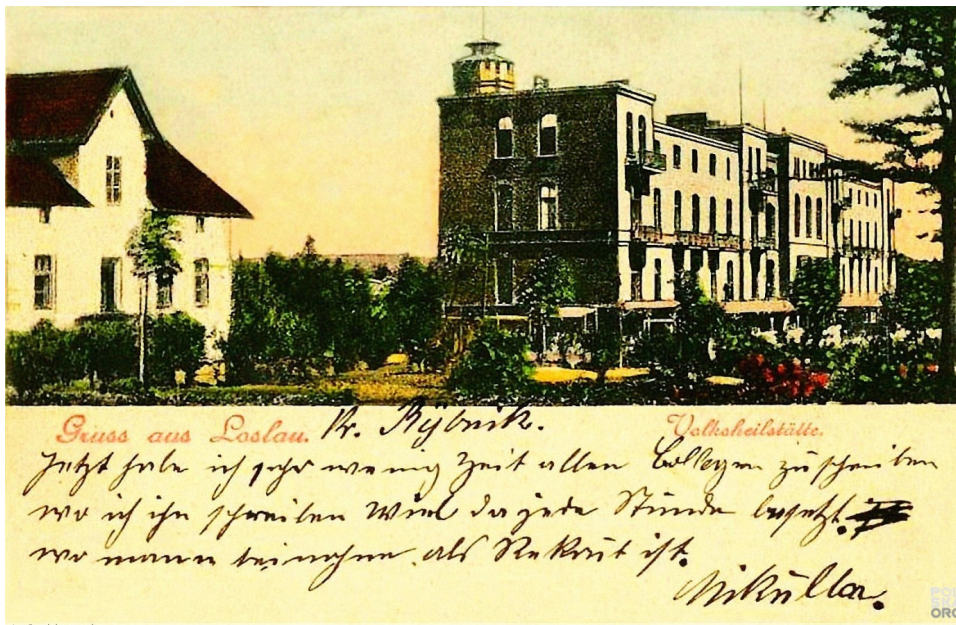 Gruss aus Loslau. Kr. Rÿbnik.
Volksheilstätte.
Jetzt habe ich sehr wenig Zeit allen Collegen zu schreiben
wo ich ihn schreiben will da jede Stunde besetzt.
wo mann beinahe als Rekrut ist.
Mikulla.